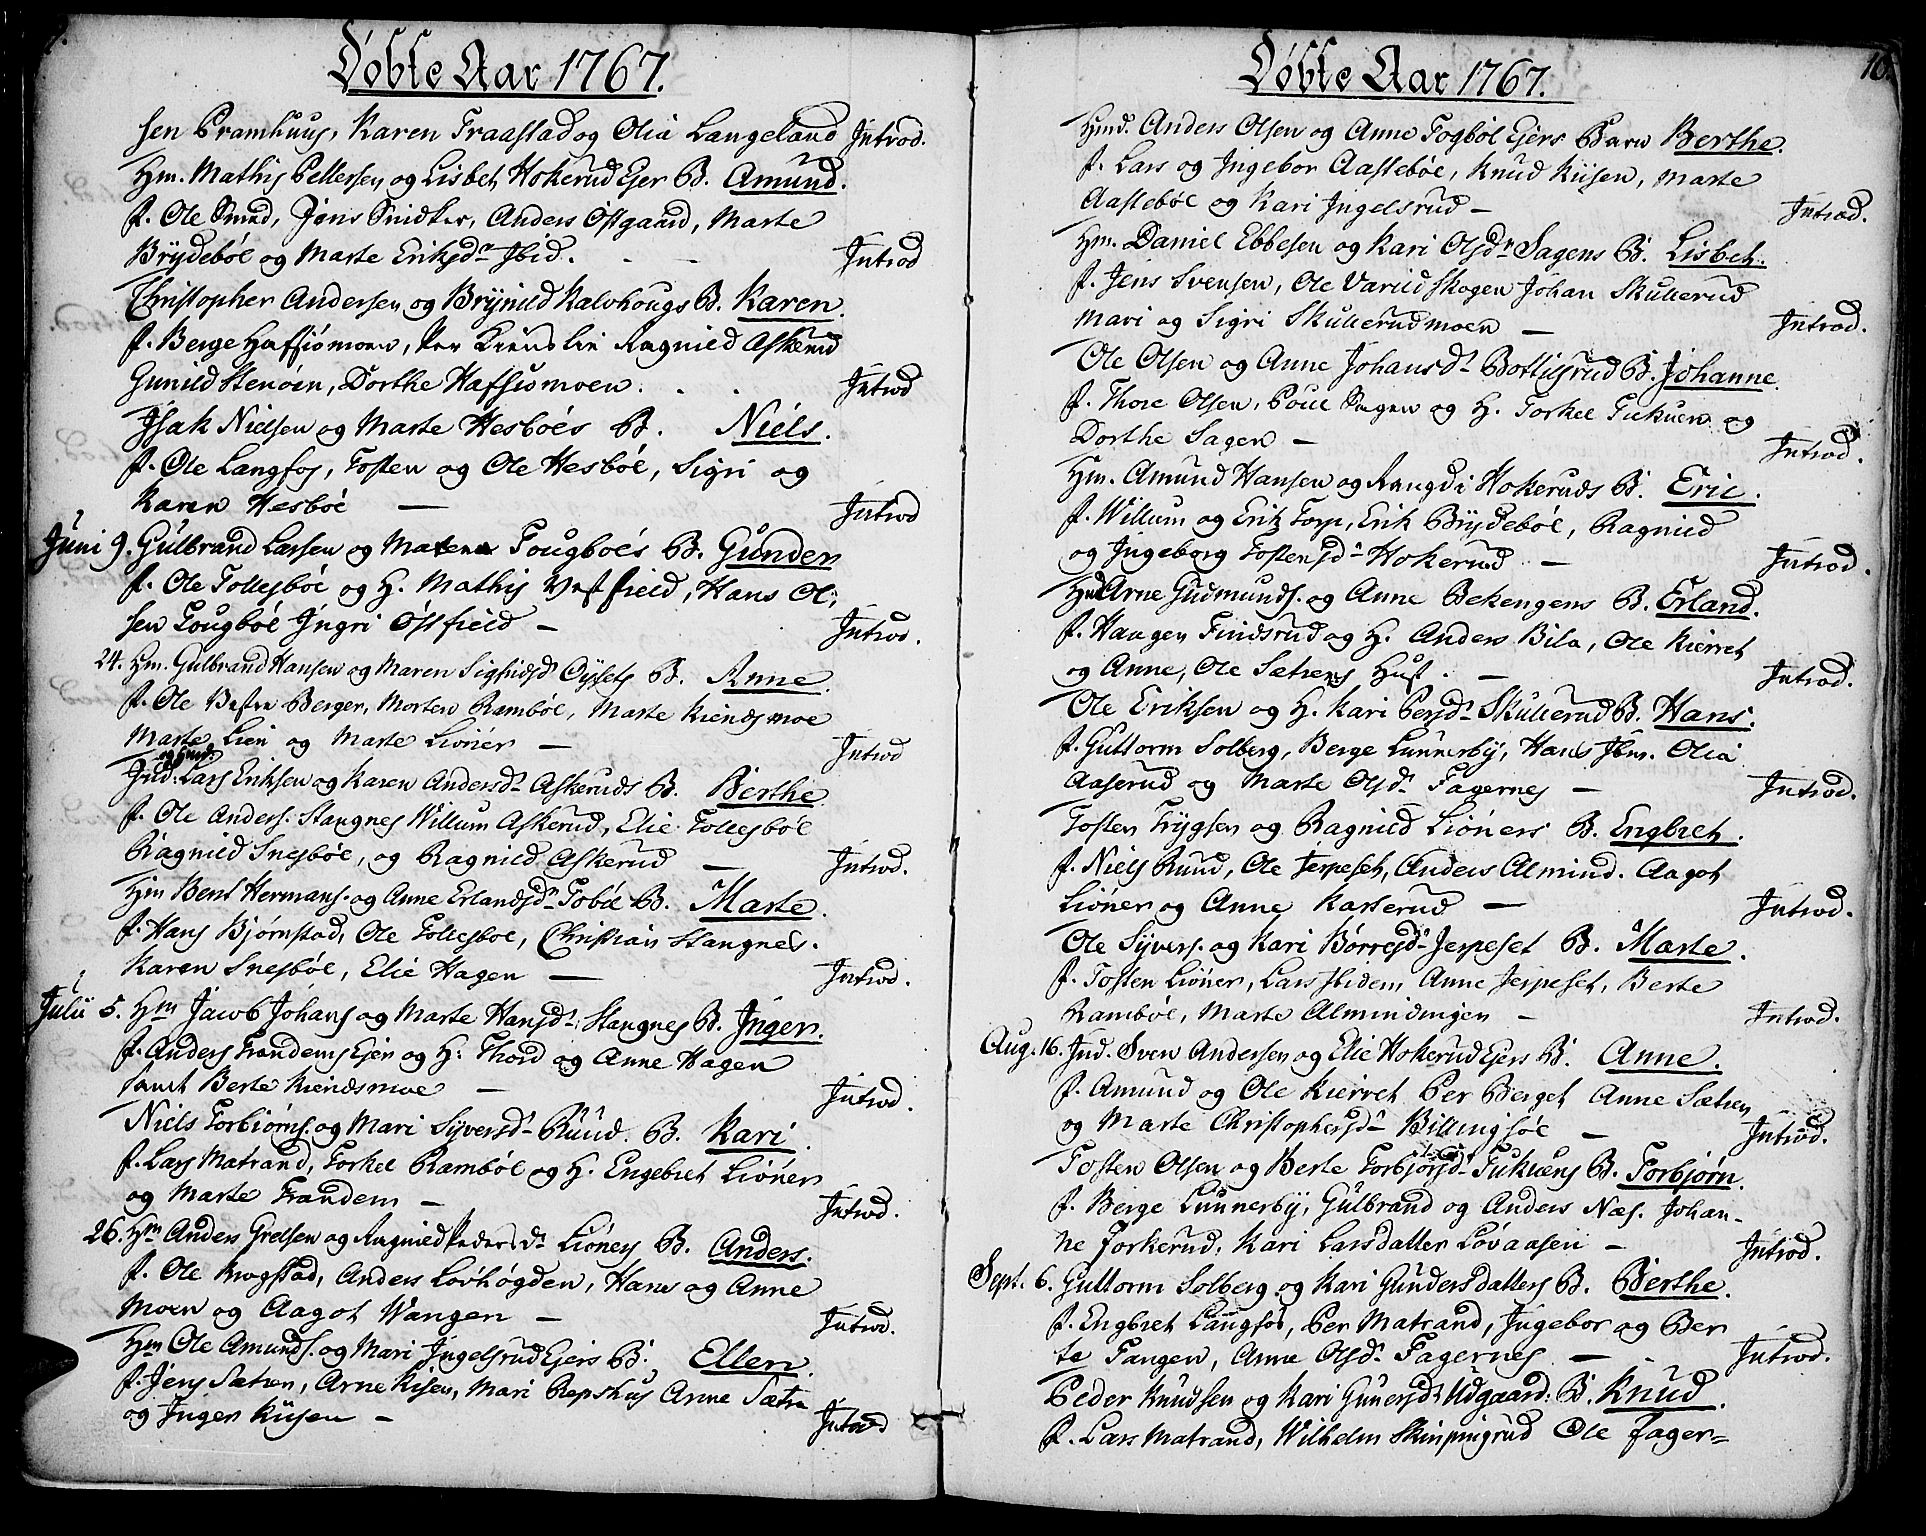 Døbte Aar 1767.
sen Pramhuus, Karen Traastad og Olia Langeland Introd.
Hm. Mathis Pettersen og Lisbet Hokerud Ejer B. Amund.
f. Ole Smed, Jøns Snidker, Anders Østgaard, Marte
Brydebøl og Marte Eriksd. Ibid. Introd
Christopher Andersen og Brynild Kalvhougs B. Karen.
f. Berge Hafsiømoen, Per Lien Ragnild Askerud
Gunild Stenøen, Dorthe Hafsiømoen. Introd
Isak Nielsen og Marte Hesbøes B. Niels.
f. Ole Langfos, Tosten og Ole Hesbøl, Sigri og
Karen Hesbøl — Introd
Juni 9. Gulbrand Larsen og Maren Tougboes B. Gunder
f. Ole Tollesbøl og H. Mathis Vestfield, Hans Ol:
sen Tougbøl Ingri Østfield — Introd.
24. Hm. Gulbrand Hansen og Maren Sigfridsd. Oysets B. Anne.
f. Ole Vesten Berger, Morten Rambøl, Marte Kiendsmoe
Marte Lien og Marte Liøner — Introd
Ind. og Smed. Lars Eriksen og Karen Andersd. Askeruds B. Berthe.
f. Ole Anders. Stangnes Willum Askerud, Elie Tollesbøl
Ragnild Snesbøl, og Ragnild Askerud — Introd.
Hm Bent Hermans. og Anne Erlandsd. Tobøl B. Marte.
f. Hans Bjørnstad, Ole Tollesboe, Christian Stangnes.
Karen Snesbøl, Elie Hagen — Introd.
Julii 5. Hm Jacob Johans og Marte Hansd. Stangnes B. Inger.
f. Anders Frandems Ejer og H. Thord og Anne Hagen
samt Berte Kiendsmoe — Introd.
Niels Torbiørns. og Mari Syversd. Ruud. B. Kari.
f. Lars Matrand, Torkel Rambøl og H. Engebret Liøner
og Marte Frandem — Introd.
26. Hm Anders Grelsen og Ragnild Pedersd. Liønes B. Anders.
f. Ole Krogstad, Anders Løvhøgden, Hans og Anne
Moen og Aagot Wangen — Introd.
Hm Ole Amunds. og Mari Ingelsrud Ejers B. Ellen.
f. Jens Sætren, Arne Riisen, Mari Repshus Anne Sætren
og Inger Riisen — Introd
Døbte Aar 1767.
10.
Hmd. Anders Olsen og Anne Togbøl Ejers Barn Berthe.
f. Lars og Ingebor Aastebøe, Knud Riisen, Marte
Aastebøl og Kari Ingelsrud — Introd.
Hm. Daniel Ebbesen og Kari Olsd. Sagens B. Lisbet.
f. Jens Svensen, Ole Varild Skogen Johan Skullerud
Mari og Sigri Skullerudmoen — Introd.
Ole Olsen og Anne Johansd. Botlilsrud B. Johanne.
f. Thore Olsen, Poul Sagen og H. Torkel Tukuen og
Dorthe Sagen — Introd.
Hm. Amund Hansen og Rangdi Hokeruds B. Eric.
f. Willum og Eritz Torp, Erik Brydebøl, Ragnild
og Ingeborg Tostensd. Hokerud — Introd.
Hm Arne Gudmunds. og Anne Bekengens B. Erland.
f. Haagen Findsrud og H. Anders Bila, Ole Kierret
og Anne, Ole Sætrens Hust. — Introd.
Ole Eriksen og H. Kari Persd. Skullerud B. Hans.
f. Guttorm Solberg, Berge Lunnerby, Hans Ibm. Olia
Aaserud og Marte Olsd. Fagernes — Introd.
Tosten Trygsen og Ragnild Liøners B. Engbret.
f. Niels Ruud, Ole Jerpeset, Anders Almind. Aagot
Liøner og Anne Karterud — Introd.
Ole Syvers. og Kari Børresd. Jerpeset B. Marte.
f. Tosten Liøner, Lars Ibidem, Anne Jerpeset, Berte
Rambøl, Marte Almindingen — Introd.
Aug. 16. Ind. Sven Andersen og Elie Hokerud Ejers B. Anne.
f. Amund og Ole Kierret Per Berget Anne Sætren
og Marte Christophersd. Billingsøl — Introd.
Tosten Olsen og Berte Torbjørsd. Tukuens B. Torbjørn.
f. Berge Lunnerby, Gulbrand og Anders Næs. Johan-
ne Jorkerud, Kari Larsdatter Løvaasen — Introd.
Sept. 6. Guttorm Solberg og Kari Gundersdatters B. Berthe.
f. Engbret Langfos, Per Matrand, Ingebor og Ber
te Tangen, Anne Olsd. Fagernes — Introd.
Peder Knudsen og Kari Gunersd. Udgaard. B. Knud.
f. Lars Matrand, Wilhelm Skinpingrud Ole Fager=